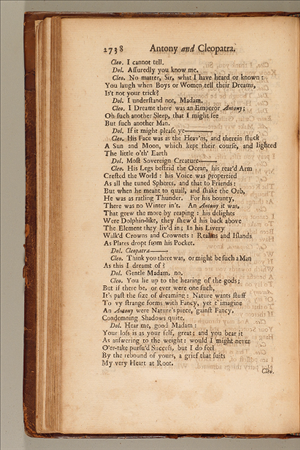 2738 Antony and Cleopatra.
Cleo. I cannot tell.
Dol. Assuredly you know me.
Cleo. No matter, Sir, what I have heard or known:
You laugh when Boys or Women tell their Dreams,
Is't not your trick?
Dol. I understand not, Madam.
Cleo. I Dreamt there was an Emperor Antony;
Oh such another Sleep, that I might see
But such another Man.
Dol. If it might please ye———
Cleo. His Face was as the Heav'ns, and therein stuck
A Sun and Moon, which kept their course, and lighted
The little o'th' Earth
Dol. Most Sovereign Creature———
Cleo. His Legs bestrid the Ocean, his rear'd Arm
Crested the World: his Voice was propertied
As all the tuned Spheres, and that to Friends:
But when he meant to quail, and shake the Orb,
He was as ratling Thunder. For his bounty,
There was no Winter in't. An Antony it was,
That grew the more by reaping: his delights
Were Dolphin-like, they shew'd his back above
The Element they liv'd in: In his Livery
Walk'd Crowns and Crownets: Realms and Islands
As Plates dropt from his Pocket.
Dol. Cleopatra———
Cleo. Think you there was, or might be such a Man
As this I dreamt of?
Dol. Gentle Madam, no.
Cleo. You lie up to the hearing of the gods;
But if there be, or ever were one such,
It's past the size of dreaming: Nature wants stuff
To vy strange forms with Fancy, yet t' imagine
An Antony were Nature's piece, 'gainst Fancy,
Condemning Shadows quite.
Dol. Hear me, good Madam:
Your loss is as your self, great; and you bear it
As answering to the weight: would I might never
O'er-take pursu'd Success, but I do feel
By the rebound of yours, a grief that suits
My very Heart at Root.
Cle.